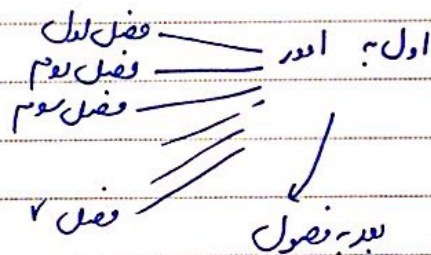 اول به امور
فصل اول
فصل دوم
فصل سوم
فصل ۷
بعد به فصول